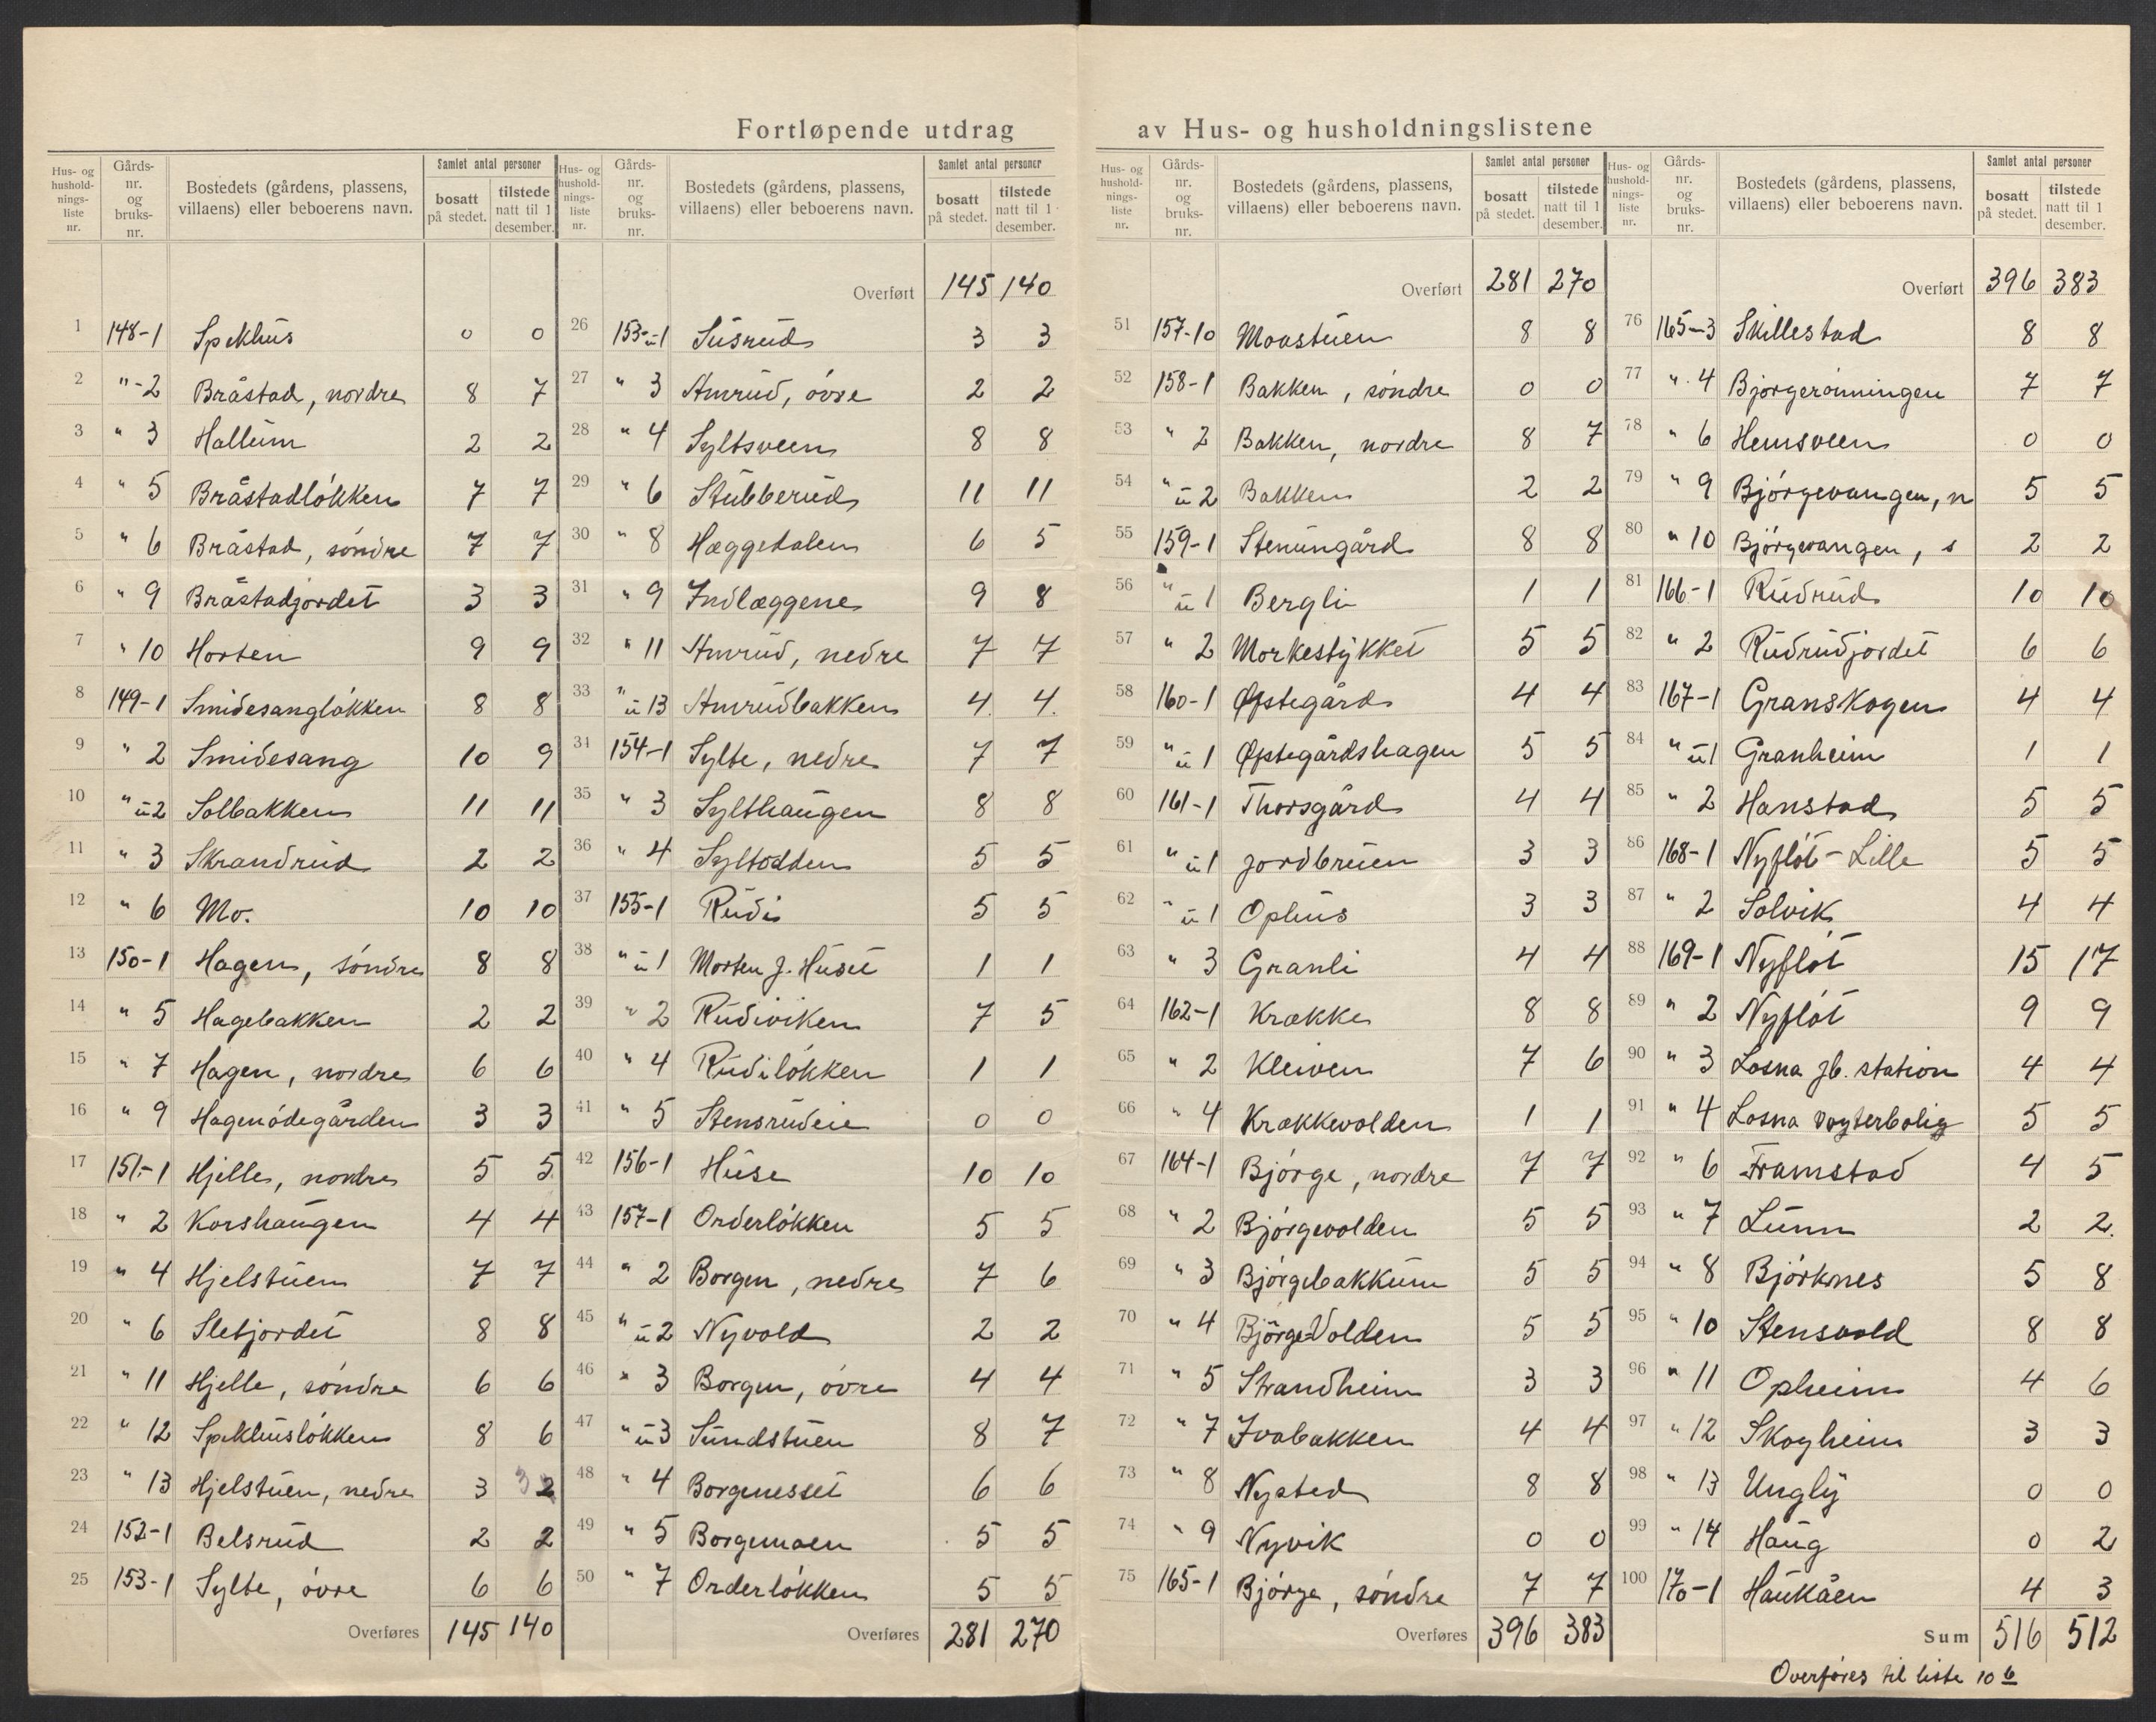 Fortløpende utdrag av Hus- og husholdningslistene
Hus- og hushold- nings- liste nr. | Gårds- nr. og bruks- nr. | Bostedets (gårdens, plassens, villaens) eller beboerens navn. | Samlet antal personer | bosatt på stedet. | tilstede natt til 1 desember.
1 148-1 Spekhus 0 0
2 "-2 Bråstad, nordre 8 7
3 " 3 Hallum 2 2
4 " 5 Bråstadløkken 7 7
5 " 6 Bråstad, søndre 7 7
6 " 9 Bråstadjordet 3 3
7 " 10 Horten 9 9
8 149-1 Smidesangløkken 8 8
9 " 2 Smidesang 10 9
10 " u2 Solbakken 11 11
11 " 3 Skrandrud 2 2
12 " 6 Mo. 10 10
13 150-1 Hagen, søndre 8 8
14 " 5 Hagebakken 2 2
15 " 7 Hagen, nordre 6 6
16 " 9 Hagenødegården 3 3
17 151-1 Hjelle, nordre 5 5
18 " 2 Korshaugen 4 4
19 " 4 Hjelstuen 7 7
20 " 6 Sletjordet 8 8
21 " 11 Hjelle, søndre 6 6
22 " 12 Spekhusløkken 8 6
23 " 13 Hjelstuen, nedre 3 2
24 152-1 Belsrud 2 2
25 153-1 Sylte, øvre 6 6
Overføres 145 140
Hus- og hushold- nings- liste nr. | Gårds- nr. og bruks- nr. | Bostedets (gårdens, plassens, villaens) eller beboerens navn. | Samlet antal personer | bosatt på stedet. | tilstede natt til 1 desember.
Overført 145 140
26 153-u1 Susrud 3 3
27 " 3 Amrud, øvre 2 2
28 " 4 Syltsveen 8 8
29 " 6 Stubberud 11 11
30 " 8 Hæggedalen 6 5
31 " 9 Indlæggene 9 8
32 " 11 Amrud, nedre 7 7
33 " u13 Amrudbakken 4. 4.
34 154-1 Sylte, nedre 7 7
35 " 3 Sylthaugen 8 8
36 " 4 Syltodden 5 5
37 155-1 Rudi 5 5
38 " u1 Morten J. Huset 1 1
39 " 2 Rudiviken 7 5
40 " 4 Rudiløkken 1 1
41 " 5 Stensrudeie 0 0
42 156-1 Huse 10 10
43 157-1 Orderløkken 5 5
44 " 2 Borgen, nedre 7 6
45 " u2 Nyvold 2 2
46 " 3 Borgen, øvre 4 4
47 " u3 Sundstuen 8 7
48 " 4 Borgenesset 6 6
49 " 5 Borgemoen 5 5
50 " 7 Orderløkken 5 5
Overføres 281 270
Hus- og hushold- nings- liste nr. | Gårds- nr. og bruks- nr. | Bostedets (gårdens, plassens, villaens) eller beboerens navn. | Samlet antal personer | bosatt på stedet. | tilstede natt til 1 desember.
Overført 281 270
51 157-10 Moastuen 8 8
52 158-1 Bakken, søndre 0 0
53 " 2 Bakken, nordre 8 7
54 " u2 Bakken 2 2
55 159-1 Stenumgård 8 8
56 " u1 Bergli 1 1
57 " 2 Morkestykket 5 5
58 160-1 Øfstegård 4 4
59 " u1 Øpstegårdshagen 5 5
60 161-1 Thorsgård 4 4
61 " u1 Jordbruen 3 3
62 " u1 Ophus 3 3
63 " 3 Granli 4 4
64 162-1 Krække 8 8
65 " 2 Kleiven 7 6
66 " 4 Krækkevolden 1 1
67 164-1 Bjørge, nordre 7 7
68 " 2 Bjørgevolden 5 5
69 " 3 Bjørgebakkum 5 5
70 " 4 Bjørge-Volden 5 5
71 " 5 Strandheim 3 3
72 " 7 Ivabakken 4 4
73 " 8 Nysted 8 8
74 " 9 Nyvik 0 0
75 165-1 Bjørge, søndre 7 7
Overføres 396 383
Hus- og hushold- nings- liste nr. | Gårds- nr. og bruks- nr. | Bostedets (gårdens, plassens, villaens) eller beboerens navn. | Samlet antal personer | bosatt på stedet. | tilstede natt til 1 desember.
Overført 396 383
76 165-3 Skillestad 8 8
77 " 4 Bjørgerønningen 7 7
78 " 6 Hemsveen 0 0
79 " 9 Bjørgevangen, n 5 5
80 " 10 Bjørgevangen, s 2 2
81 166-1 Rudrud 10 10
82 " 2 Rudrudjordet 6 6
83 167-1 Granskogen 4 4
84 " u1 Granheim 1 1
85 " 2 Hanstad 5 5
86 168-1 Nyfløt-Lille 5 5
87 " 2 Solvik 4 4
88 169-1 Nyfløt 15 17
89 " 2 Nyfløt 9 9
90 " 3 Losna jb. station 4 4
91 " 4 Losna vogterbolig 5 5
92 " 6 Framstad 4 5
93 " 7 Lunn 2 2.
94 " 8 Bjørknes 5 8
95 " 10 Stensvold 8 8
96 " 11 Opheim 4 6
97 " 12 Skogheim 3 3
98 " 13 Ungly 0 0
99 " 14 Haug 0 2
100 170-1 Haukåen 4 3
Sum 516 512
Overføres til liste 10 b